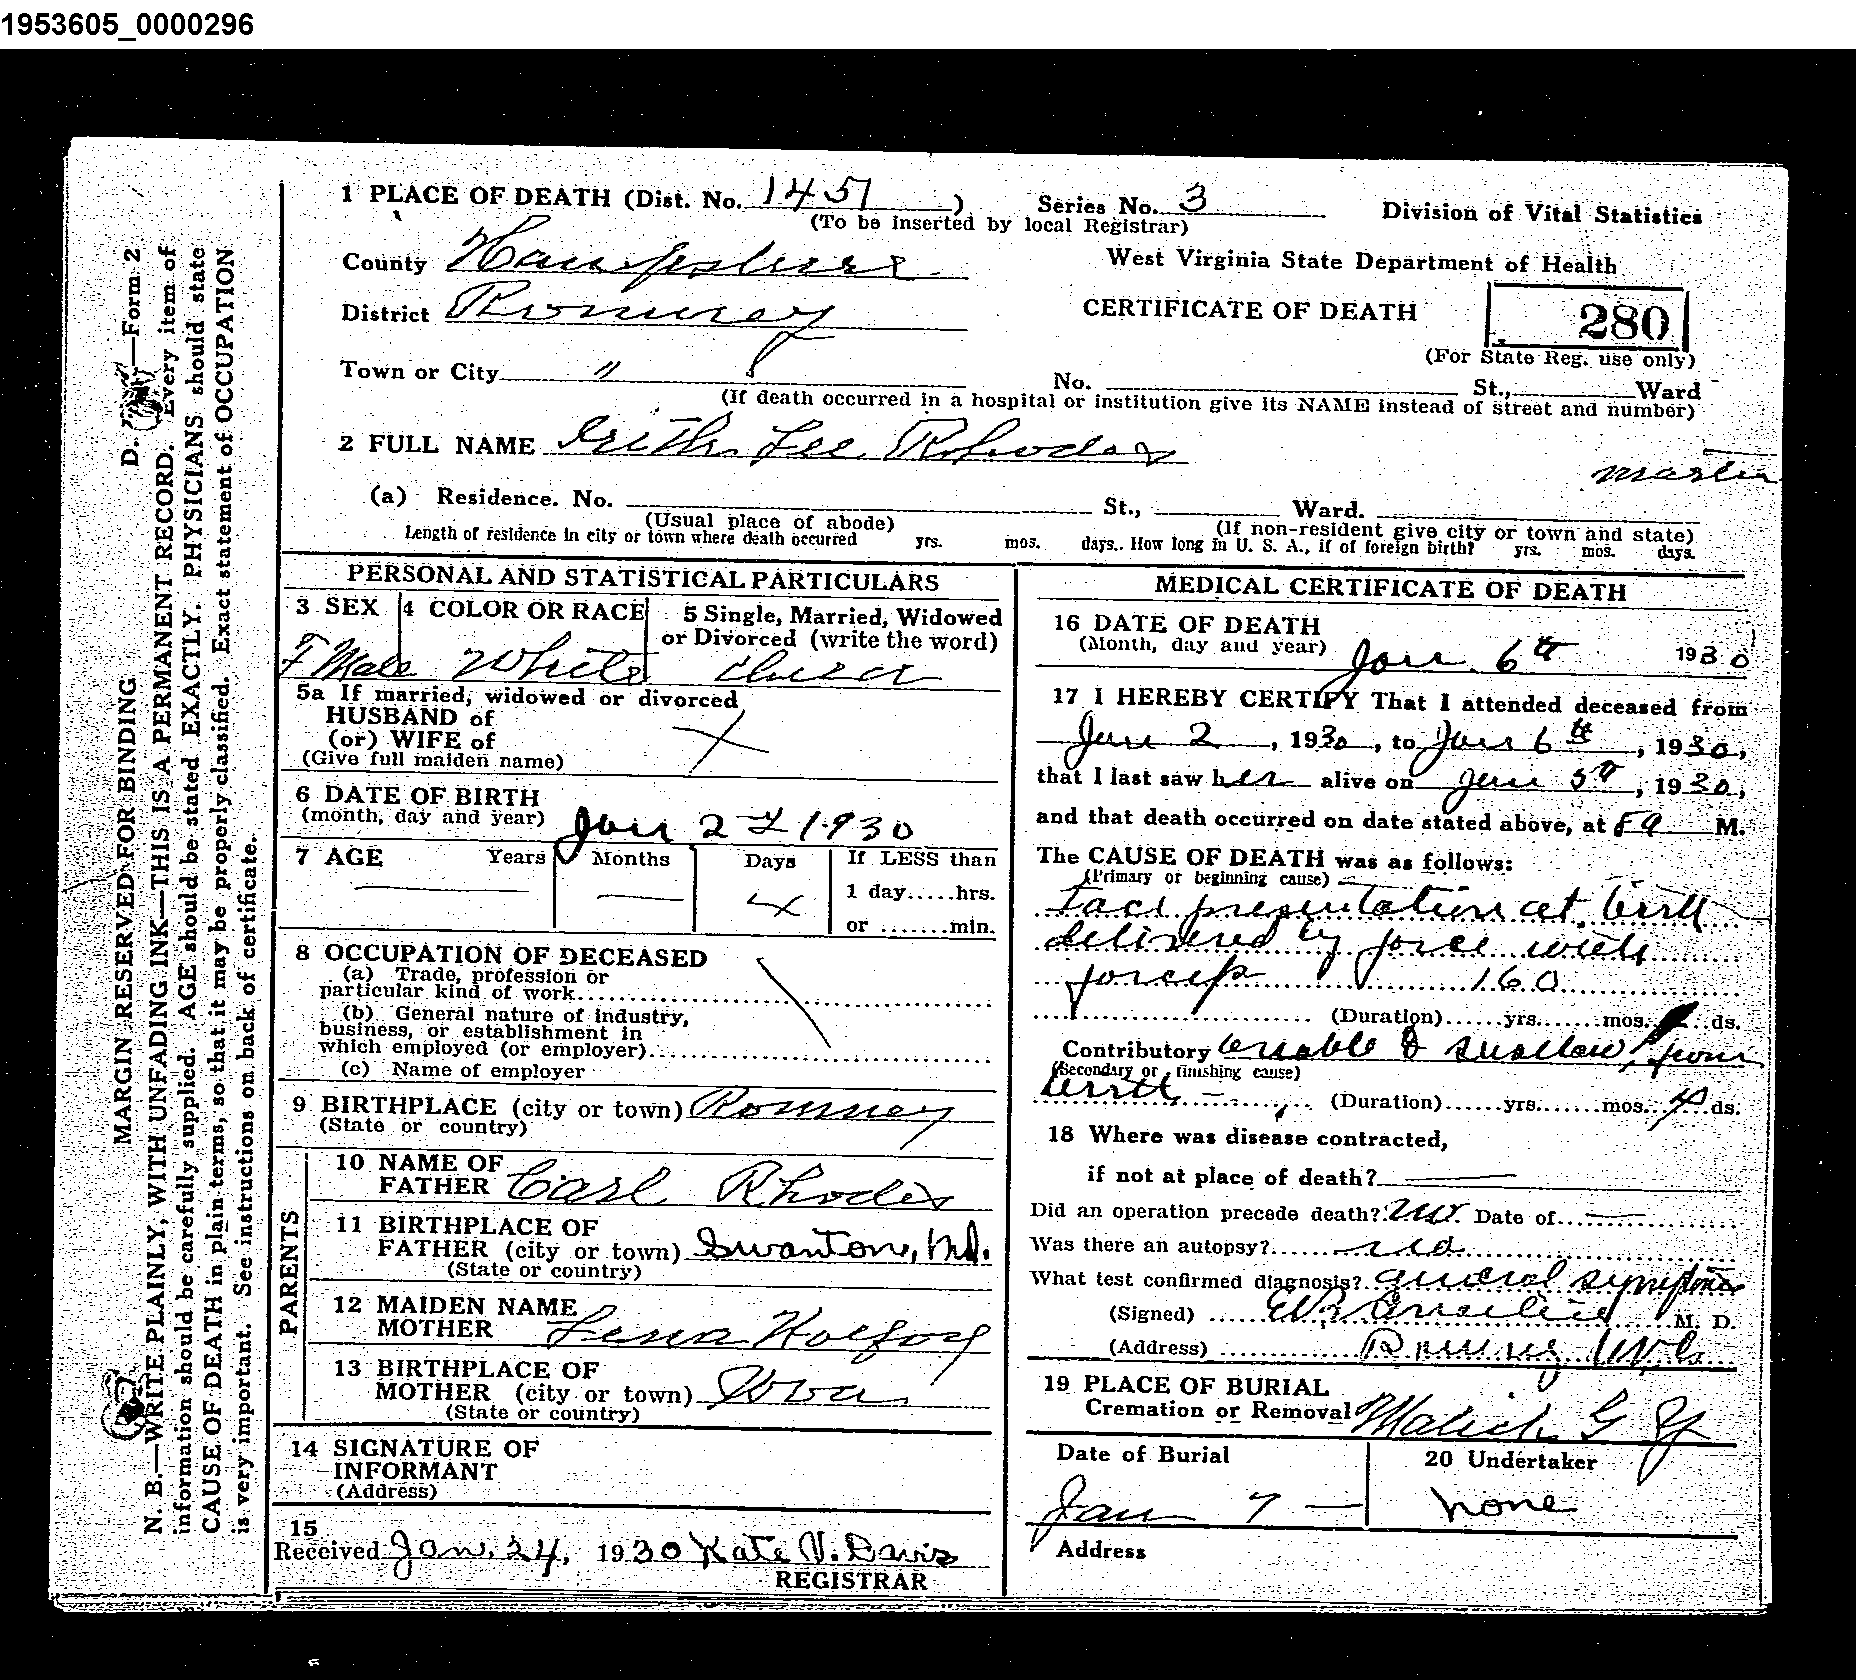 1953605_0000296
1 PLACE OF DEATH (Dist. No. 1451 ) Series No. 3 Division of Vital Statistics
(To be inserted by local Registrar)
County Hampshire West Virginia State Department of Health
District Romney CERTIFICATE OF DEATH 280
(For State Reg. use only)
Town or City " No. St., Ward
(If death occurred in a hospital or institution give its NAME instead of street and number)
2 FULL NAME Lee Rhodes
(a) Residence. No. St., Ward.
(Usual place of abode) (If non-resident give city or town and state)
Length of residence in city or town where death occurred yrs. mos. days. How long in U. S. A., if of foreign birth? yrs. mos. days.
PERSONAL AND STATISTICAL PARTICULARS
3 SEX 4 COLOR OR RACE 5 Single, Married, Widowed
or Divorced (write the word)
F Male White
5a If married, widowed or divorced
HUSBAND of
(or) WIFE of
(Give full maiden name)
6 DATE OF BIRTH
(month, day and year) Jan 2 1930
7 AGE Years Months Days If LESS than
1 day.....hrs.
4
or .......min.
8 OCCUPATION OF DECEASED
(a) Trade, profession or
particular kind of work
(b) General nature of industry,
business, or establishment in
which employed (or employer)
(c) Name of employer
9 BIRTHPLACE (city or town) Romney
(State or country)
PARENTS
10 NAME OF
FATHER Carl Rhodes
11 BIRTHPLACE OF
FATHER (city or town) Swanton, Md.
(State or country)
12 MAIDEN NAME
MOTHER Lena
13 BIRTHPLACE OF
MOTHER (city or town)
(State or country)
14 SIGNATURE OF
INFORMANT
(Address)
15
Received Jan. 24, 1930 Kate V. Davis
REGISTRAR
MEDICAL CERTIFICATE OF DEATH
16 DATE OF DEATH
(Month, day and year) Jan 6th 1930
17 I HEREBY CERTIFY That I attended deceased from
Jan 2, 1930, to Jan 6th, 1930,
that I last saw her alive on Jan 5th, 1930,
and that death occurred on date stated above, at M.
The CAUSE OF DEATH was as follows:
(Primary or beginning cause)
Face presentation at birth
delivered by force with
forceps 160
(Duration)......yrs.......mos. ds.
Contributory swallow from
(Secondary or finishing cause)
birth (Duration)......yrs.......mos. 4 ds.
18 Where was disease contracted,
if not at place of death?
Did an operation precede death? no. Date of
Was there an autopsy? no
What test confirmed diagnosis? general symptoms
(Signed) M. D.
(Address) Romney W.Va.
19 PLACE OF BURIAL
Cremation or Removal
Date of Burial 20 Undertaker
Jan 7 none
Address
MARGIN RESERVED FOR BINDING D. —Form 2
N. B.—WRITE PLAINLY, WITH UNFADING INK—THIS IS A PERMANENT RECORD. Every item of
information should be carefully supplied. AGE should be stated EXACTLY. PHYSICIANS should state
CAUSE OF DEATH in plain terms, so that it may be properly classified. Exact statement of OCCUPATION
is very important. See instructions on back of certificate.